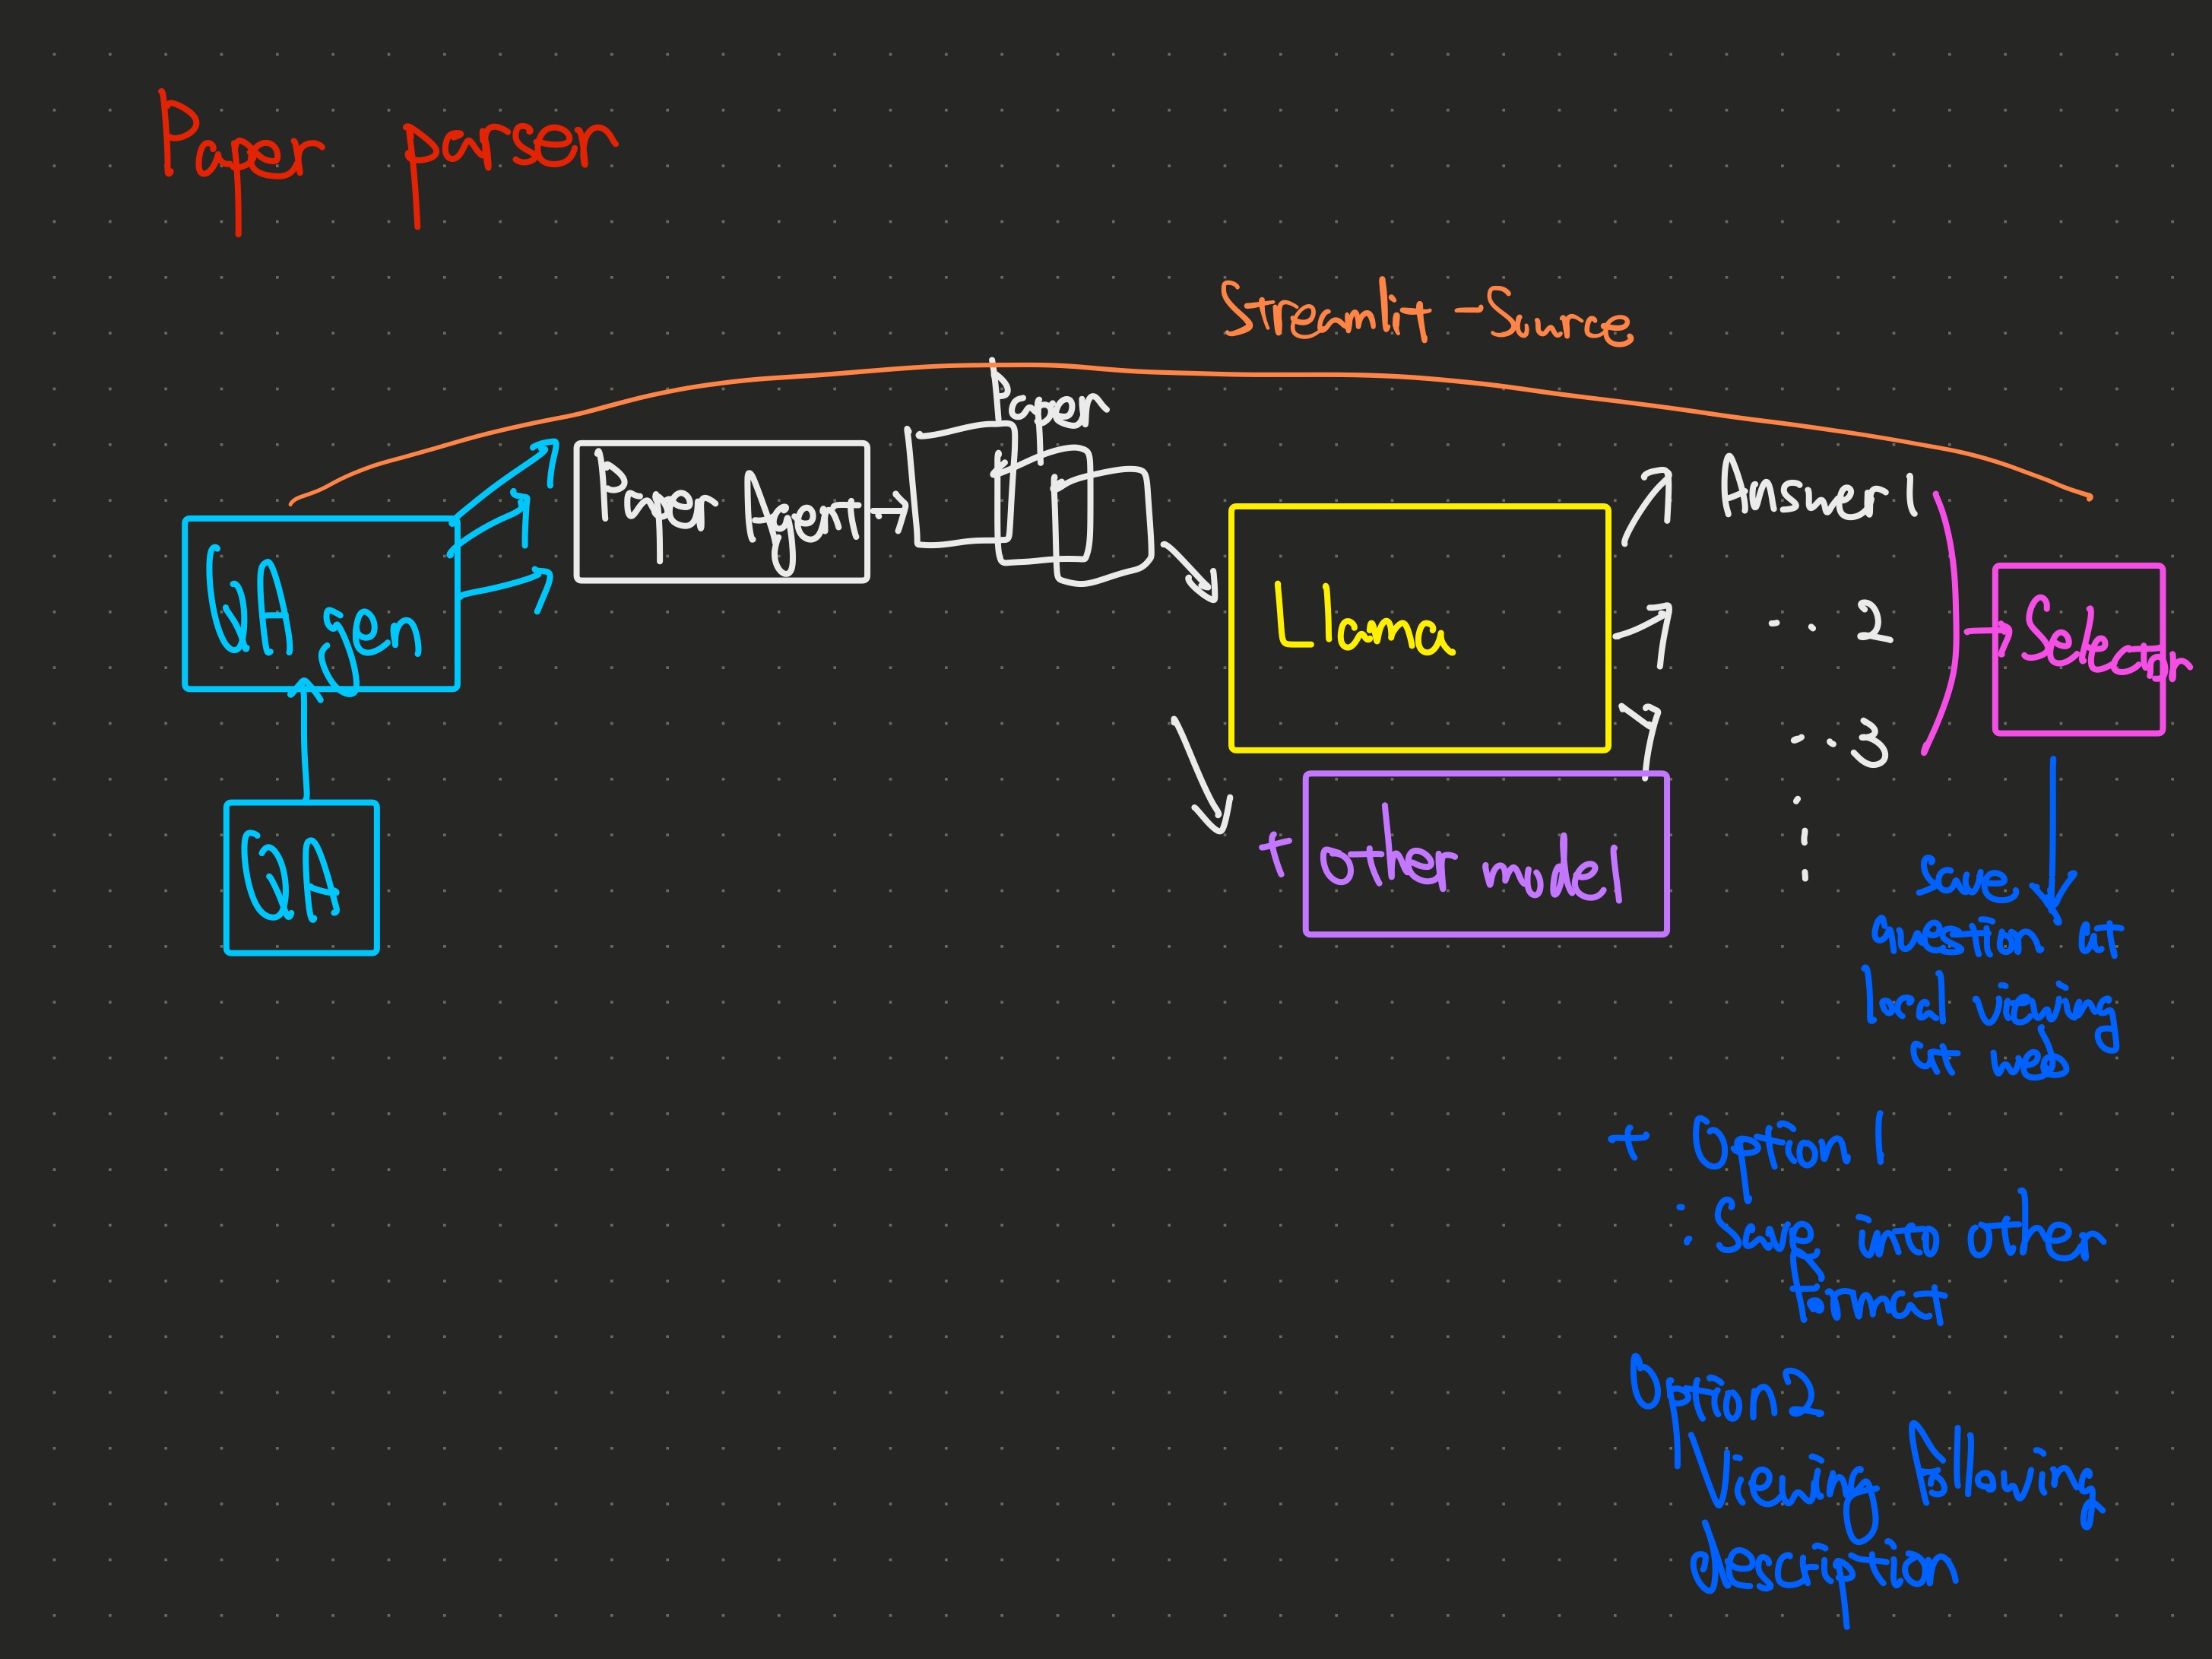 Paper parser
Streamlit - Source
Paper
QA gen
Paper Agent
Llama
Answer 1
.. 2
.. 3
Selector
QA
+ other model
Save
question at
local viewing
at web
+ Option 1
: Save into other
format
Option 2
Viewing
description